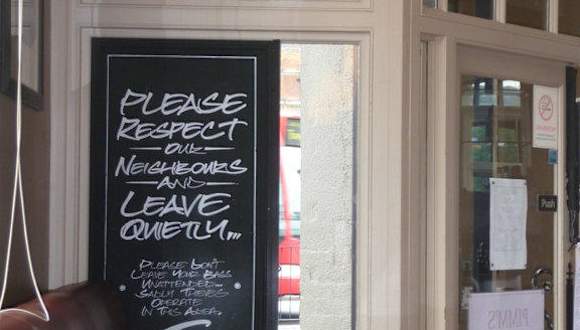 PLEASE
RESPECT
OUR
NEIGHBOURS
AND
LEAVE
QUIETLY...
PLEASE DON'T
LEAVE YOUR BAGS
UNATTENDED...
SADLY THEIVES
OPERATE
IN THIS AREA.
Push
PIMMS